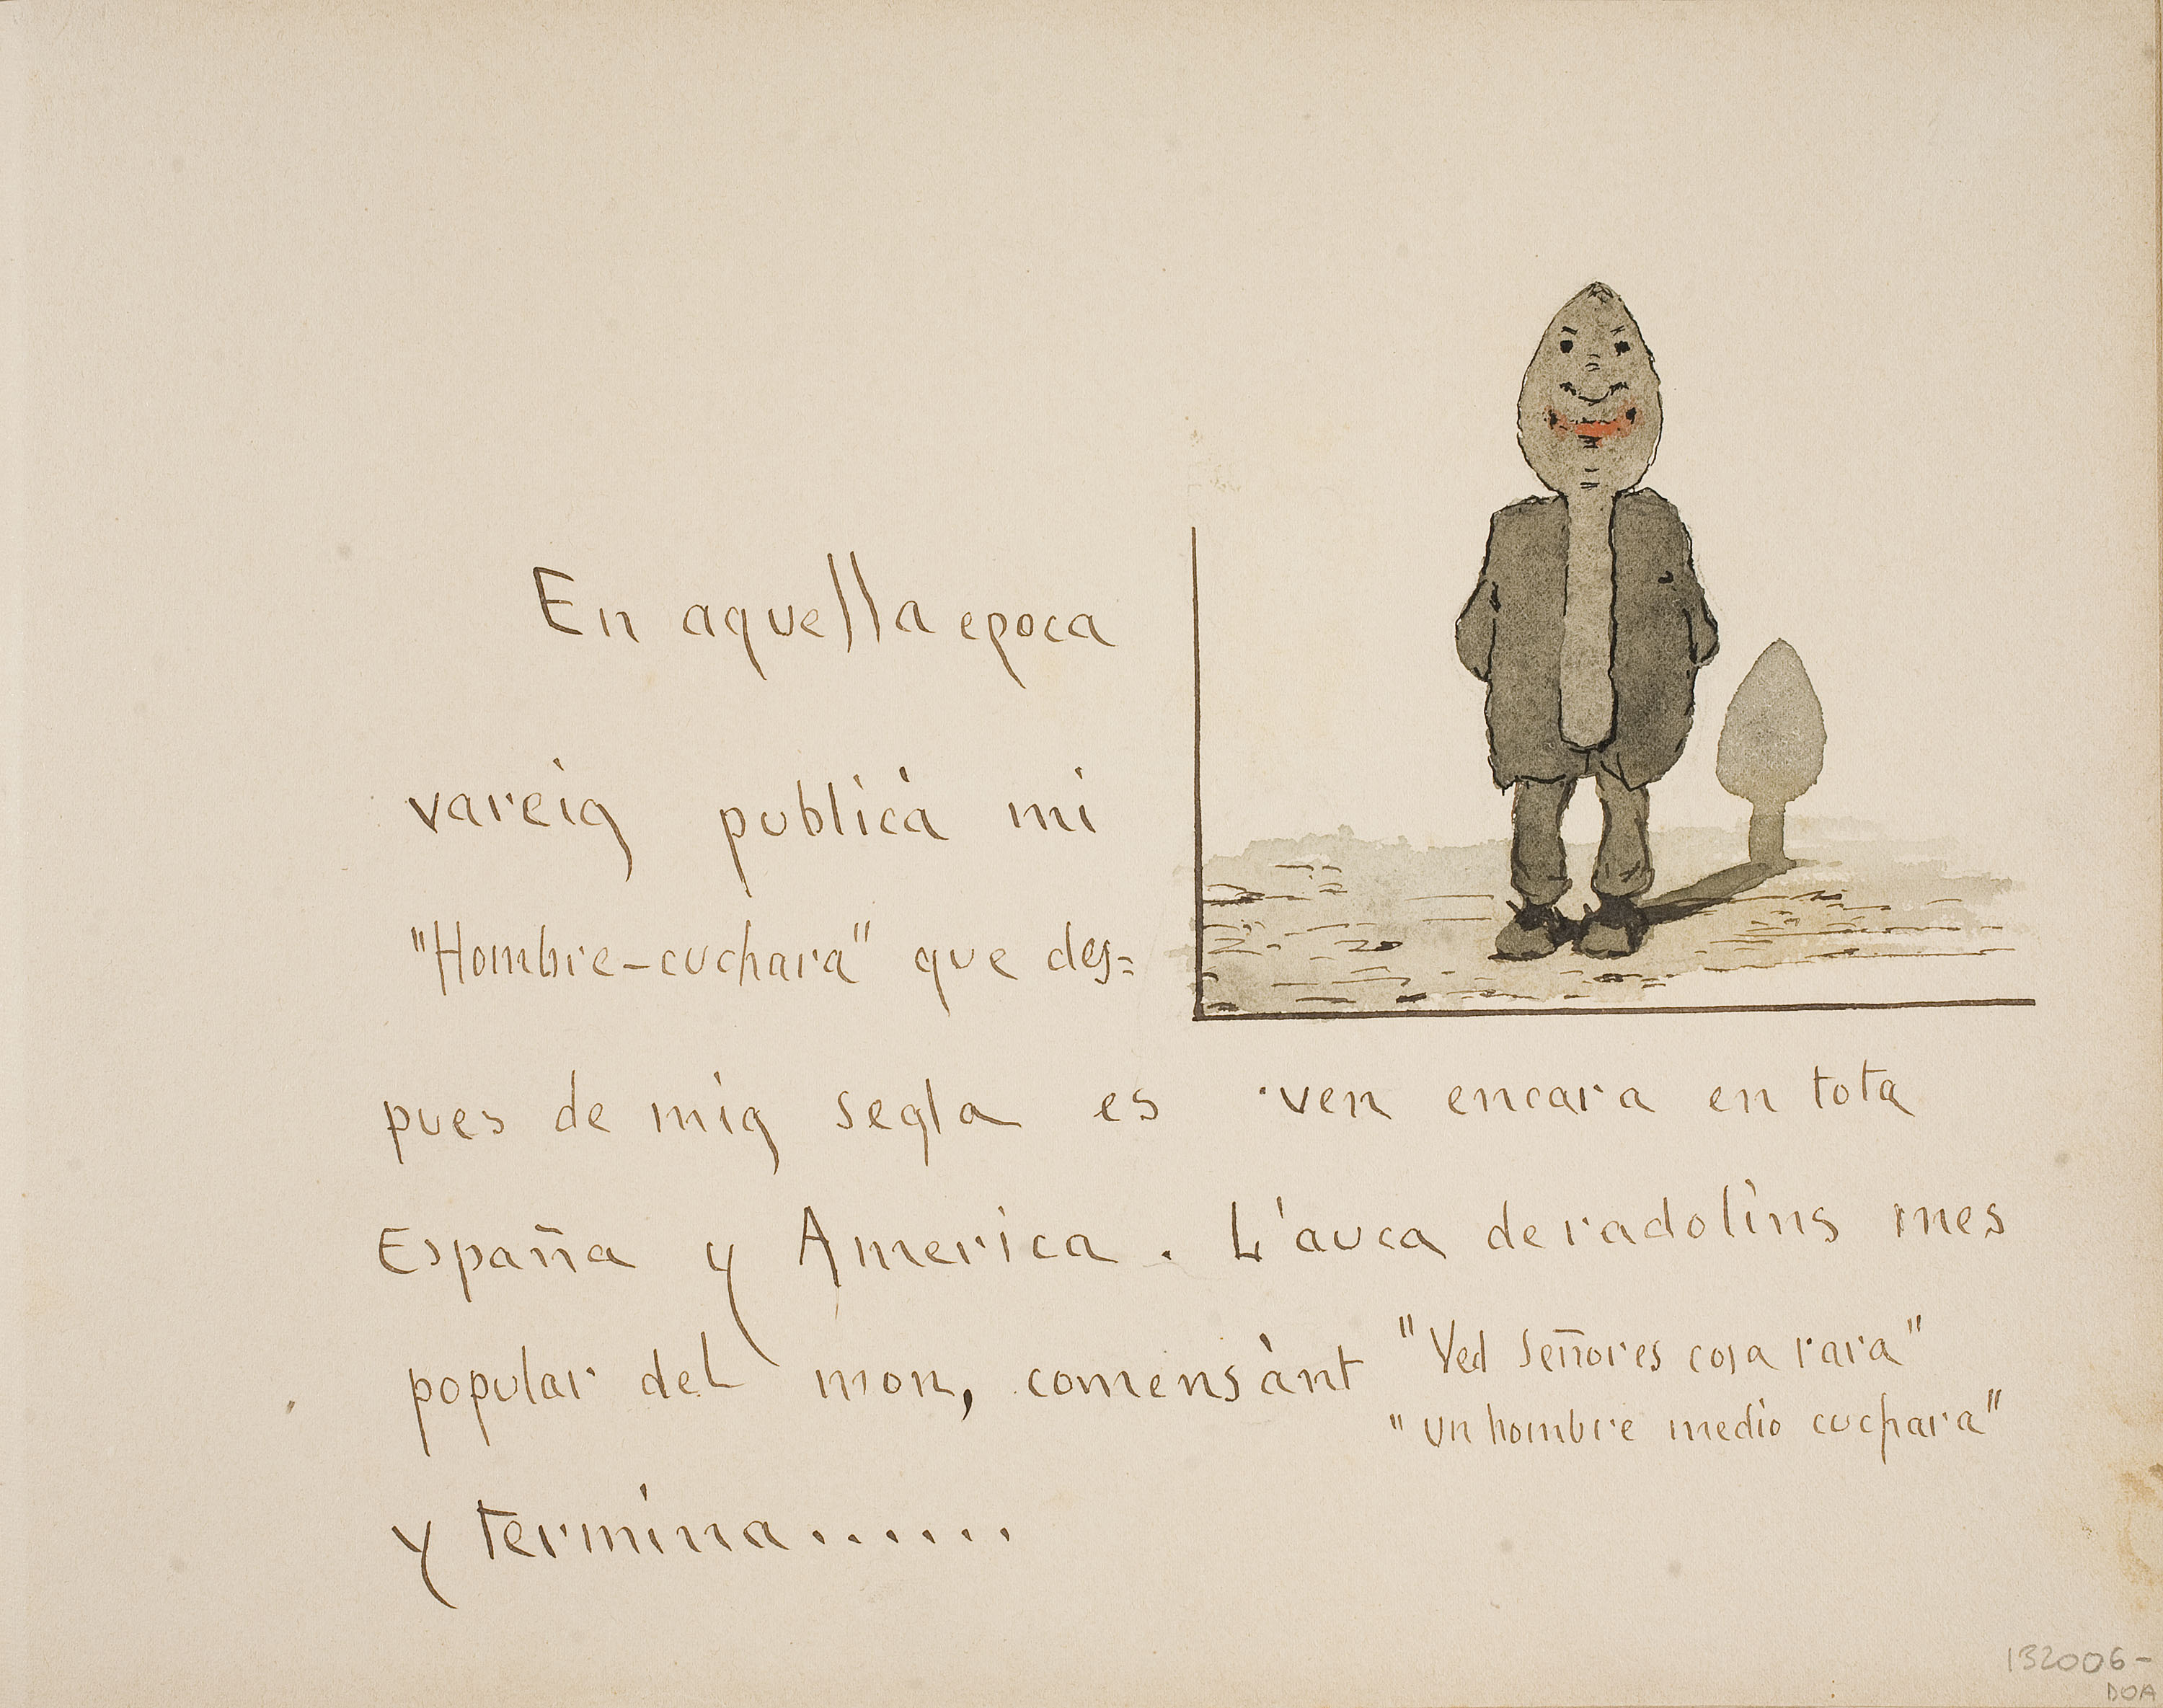 En aquella epoca
vareig publicá mi
"Hombre-cuchara" que des=
pues de mig segla es ven encara en tota
España y America. L'auca de radolins mes
popular del mon, comensànt "Ved Señores cosa rara"
"un hombre medio cuchara"
y termina......
132006-
DOA